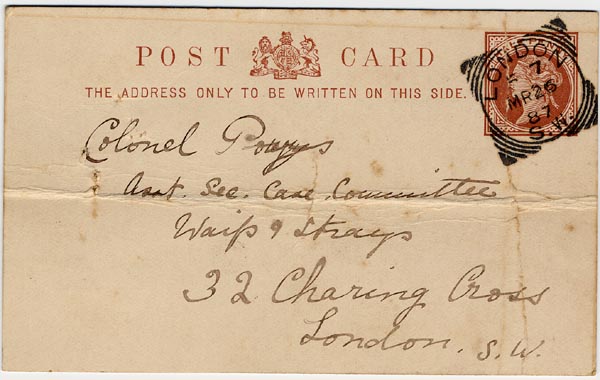 POST CARD
THE ADDRESS ONLY TO BE WRITTEN ON THIS SIDE.
LONDON
7
MR 26
87
S.W.
Colonel Powys
Asst. Sec. Case Committee
Waifs & Strays
32 Charing Cross
London. S.W.